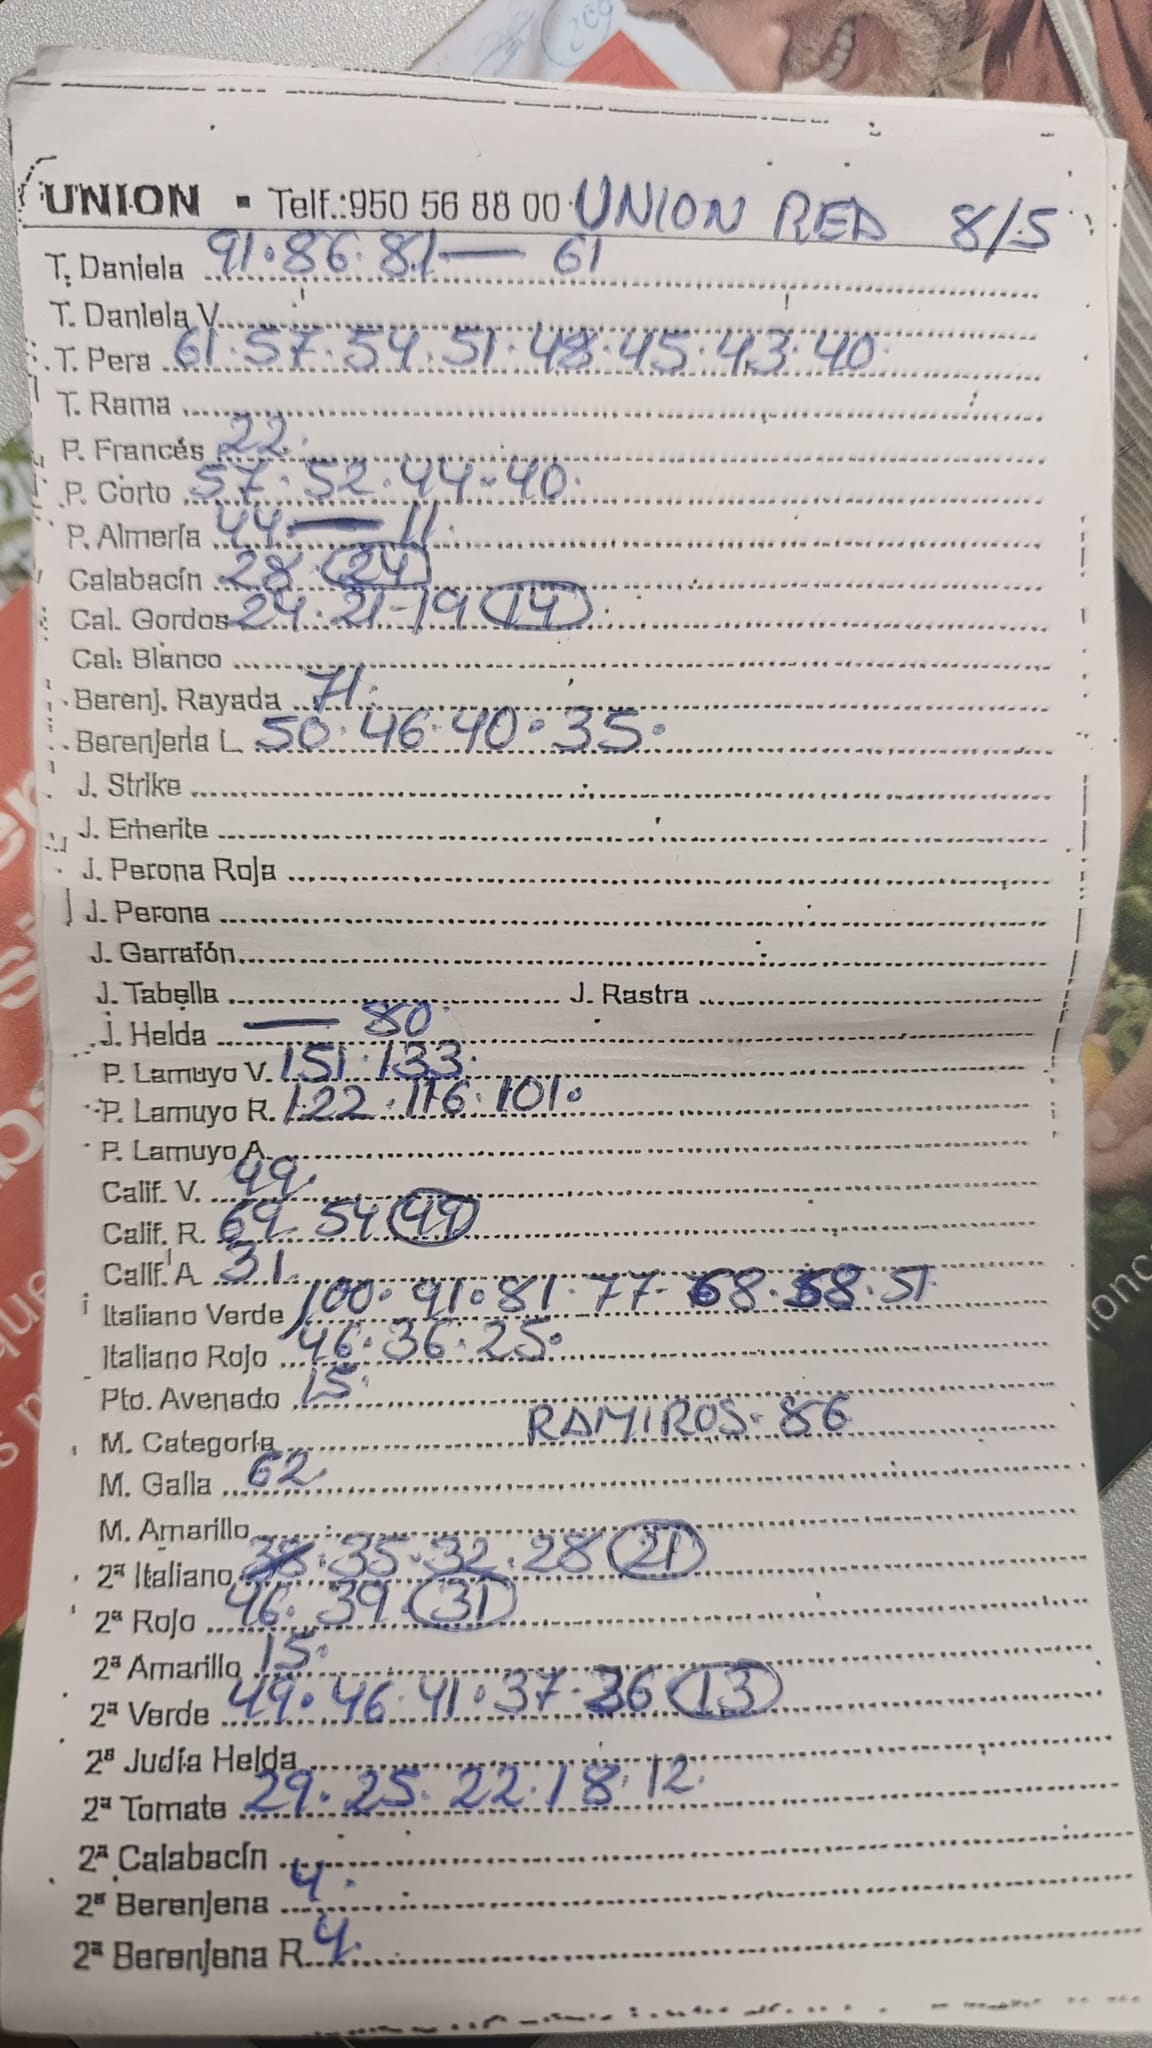 209
UNION - Telf.:950 56 88 00 UNION RED 8/5
T. Daniela 91·86·81— 61
T. Daniela V.
T. Pera 61·57·54·51·48·45·43·40·
T. Rama
P. Francés 22.
P. Corto 57·52·44·40·
P. Almería 44 — 11.
Calabacín 28·24
Cal. Gordos 24·21-19 14
Cal. Blanco
Berenj. Rayada 71.
Berenjena L. 50·46·40·35·
J. Strike
J. Emerite
J. Perona Roja
J. Perona
J. Garrafón
J. Tabella J. Rastra
J. Helda — 80.
P. Lamuyo V. 151·133.
P. Lamuyo R. 122·116·101.
P. Lamuyo A.
Calif. V. 49.
Calif. R. 69 54 49
Calif. A 31.
Italiano Verde 100·91·81·77·68·58·51
Italiano Rojo 46·36·25·
Pto. Avenado 15.
RAMIROS·86
M. Categoría
M. Galla 62.
M. Amarillo
2ª Italiano 38·35·32·28 21
2ª Rojo 46·39 31
2ª Amarillo 15·
2ª Verde 49·46·41·37·36 13
2ª Judía Helda
2ª Tomate 29·25·22·18·12·
2ª Calabacín
2ª Berenjena 4.
2ª Berenjena R. 4.